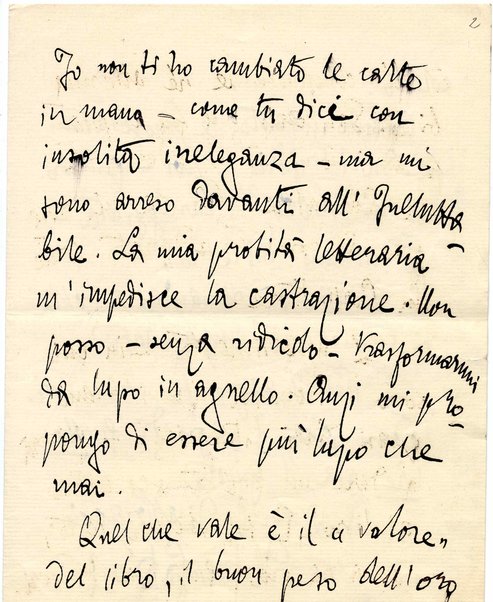 2
Io non ti ho cambiato le carte
in mano – come tu dici con
insolita ineleganza – ma mi
sono arreso davanti all'Inelutta-
bile. La mia probità letteraria
m'impedisce la castrazione. Non
posso – senza ridicolo – trasformarmi
da lupo in agnello. Anzi mi pro-
pongo di essere più lupo che
mai.
Quel che vale è il « valore »
del libro, il buon peso dell'oro